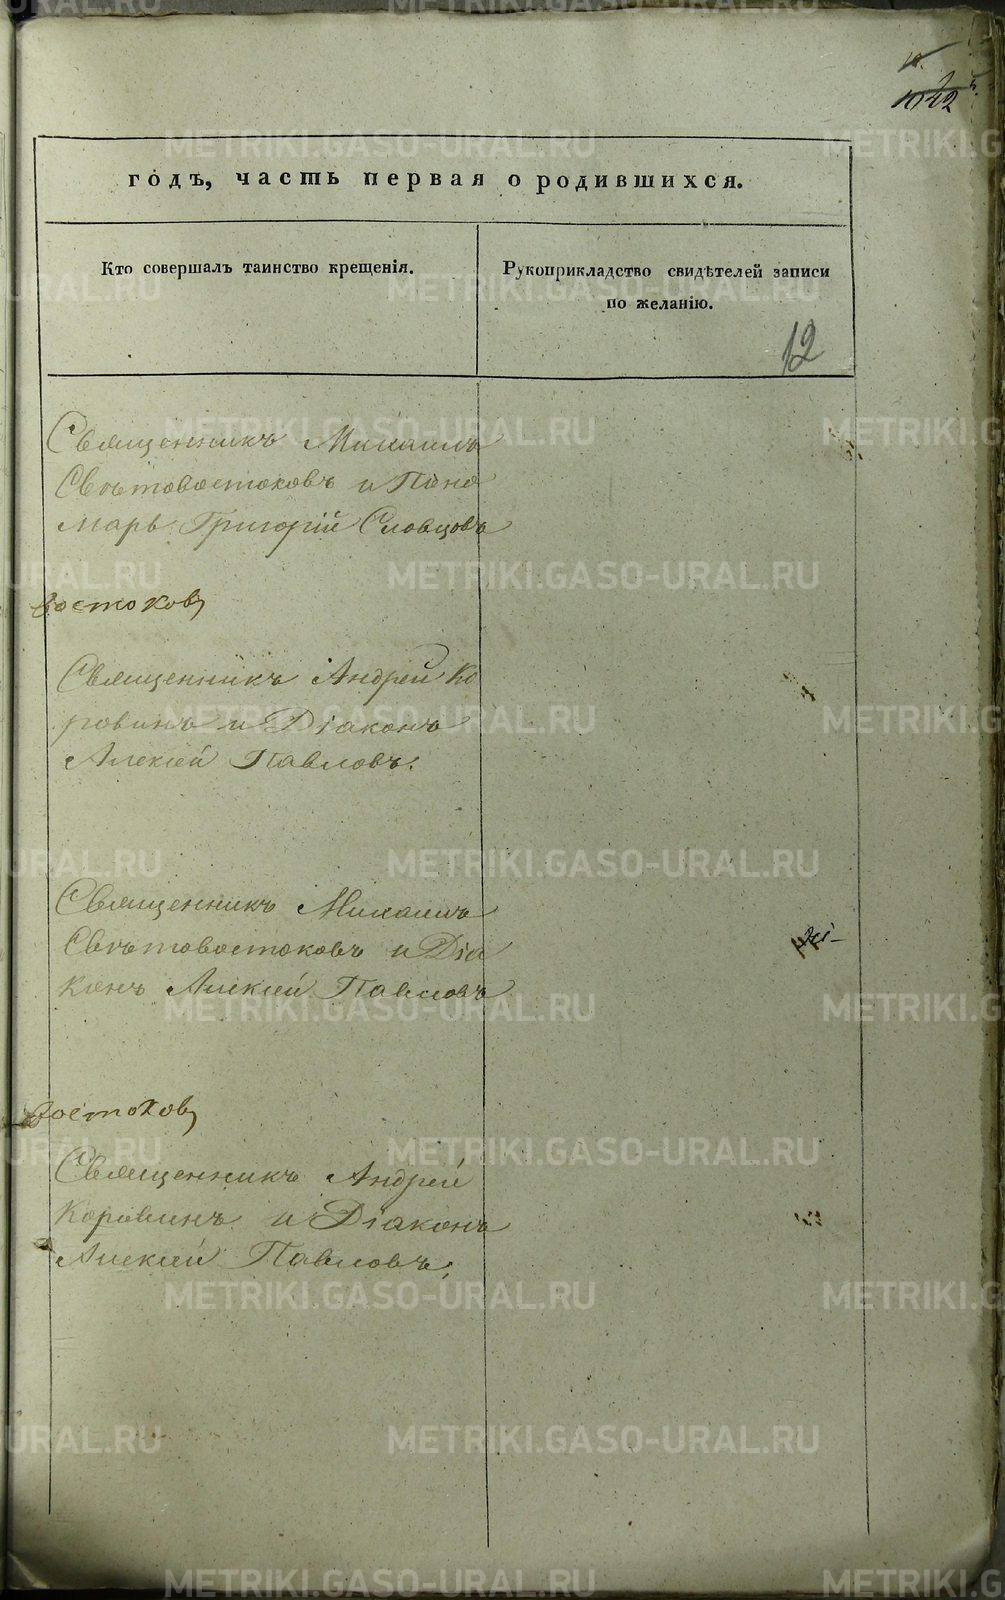 1042
годъ, часть первая о родившихся.
Кто совершалъ таинство крещенія.
Рукоприкладство свидѣтелей записи
по желанію.
12
Священникъ Михаилъ
Свѣтовостоковъ и Поно
марь Григорій Словцовъ
востоковъ
Священникъ Андрей Ко
ровинъ и Діаконъ
Алексѣй Павловъ.
Священникъ Михаилъ
Свѣтовостоковъ и Діа
конъ Алексѣй Павловъ
востоковъ
Священникъ Андрей
Коровинъ и Діаконъ
Алексѣй Павловъ.
METRIKI.GASO-URAL.RU